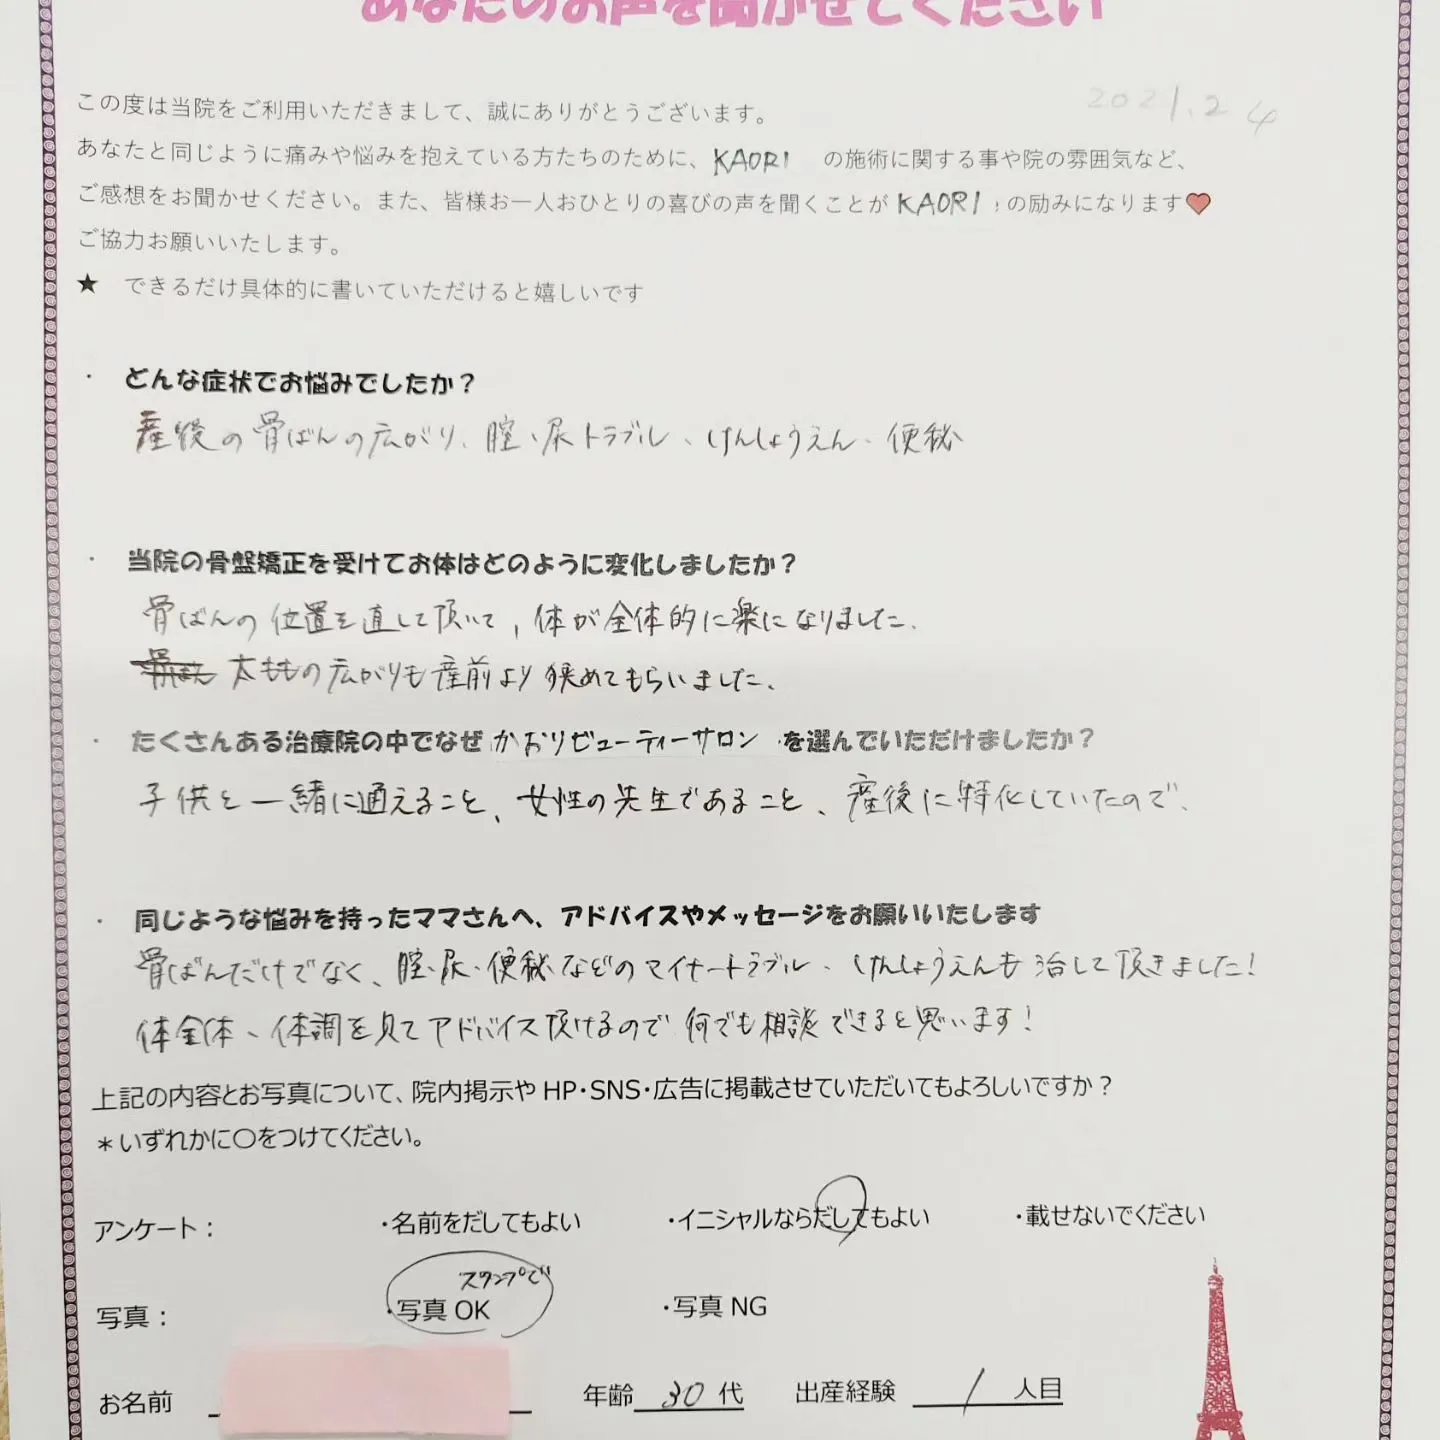 あなたのお声を聞かせてください
2021.2 4
この度は当院をご利用いただきまして、誠にありがとうございます。
あなたと同じように痛みや悩みを抱えている方たちのために、KAORI の施術に関する事や院の雰囲気など、
ご感想をお聞かせください。また、皆様お一人おひとりの喜びの声を聞くことが KAORI の励みになります❤
ご協力お願いいたします。
★ できるだけ具体的に書いていただけると嬉しいです
・ どんな症状でお悩みでしたか？
産後の骨ばんの広がり、膣、尿トラブル、けんしょうえん、便秘
・ 当院の骨盤矯正を受けてお体はどのように変化しましたか？
骨ばんの位置を直して頂いて、体が全体的に楽になりました。
太ももの広がりも産前より狭めてもらいました。
・ たくさんある治療院の中でなぜ かおりビューティーサロン を選んでいただけましたか？
子供と一緒に通えること、女性の先生であること、産後に特化していたので、
・ 同じような悩みを持ったママさんへ、アドバイスやメッセージをお願いいたします
骨ばんだけでなく、膣、尿、便秘などのマイナートラブル、けんしょうえんも治して頂きました！
体全体、体調を見てアドバイス頂けるので何でも相談できると思います！
上記の内容とお写真について、院内掲示や HP・SNS・広告に掲載させていただいてもよろしいですか？
＊いずれかに〇をつけてください。
アンケート： ・名前をだしてもよい ・イニシャルならだしてもよい ・載せないでください
スタンプで
写真： ・写真 OK ・写真 NG
お名前 年齢 30 代 出産経験 1 人目